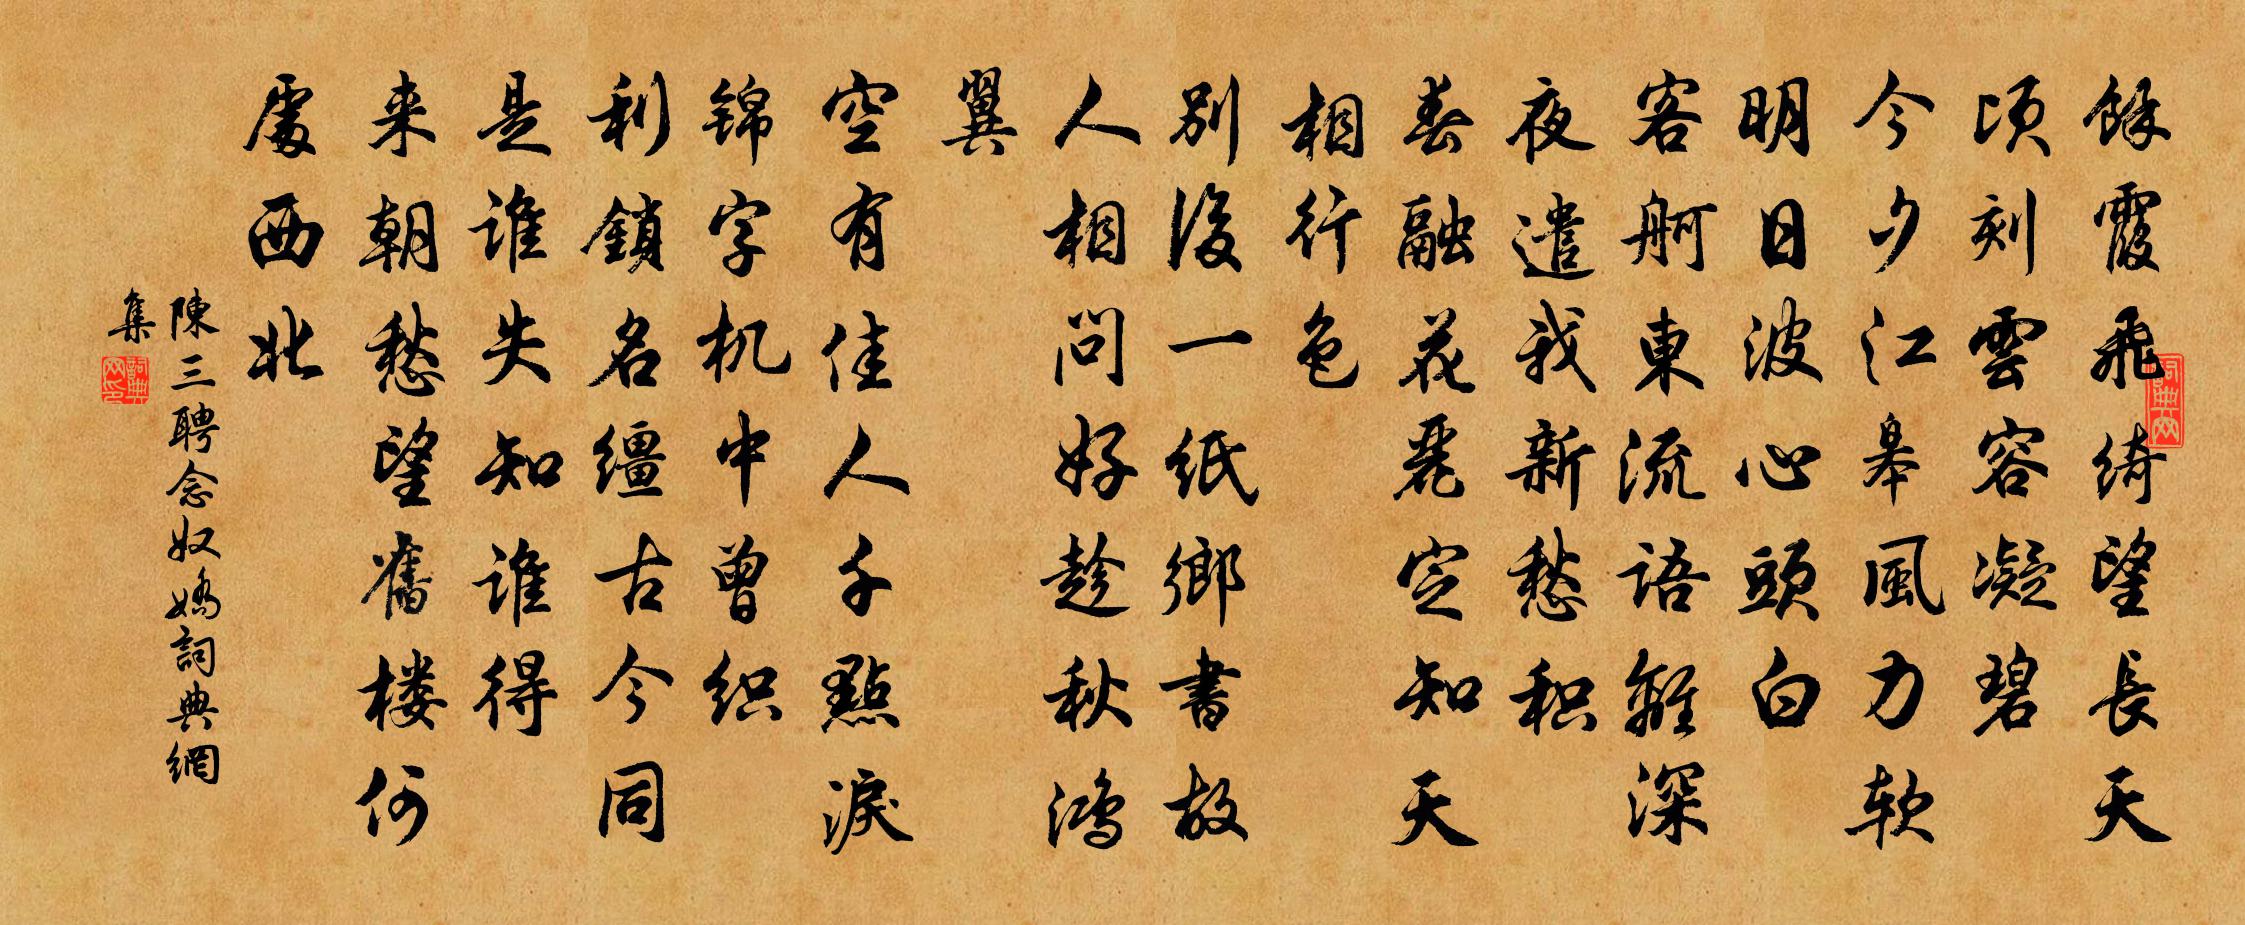 餘霞飛綺望長天
頃刻雲容凝碧
今夕江皋風力软
明日波心頭白
客舸東流語離深
夜遣我新愁积
春融花麗定知天
相行色
別後一紙鄉書故
人相問好趁秋鸿
翼
空有佳人千點淚
锦字机中曾织
利鎖名缰古今同
是谁失知谁得
来朝愁望舊楼何
處西北
陳三聘念奴嬌詞典網
集
詞典网
詞典网印